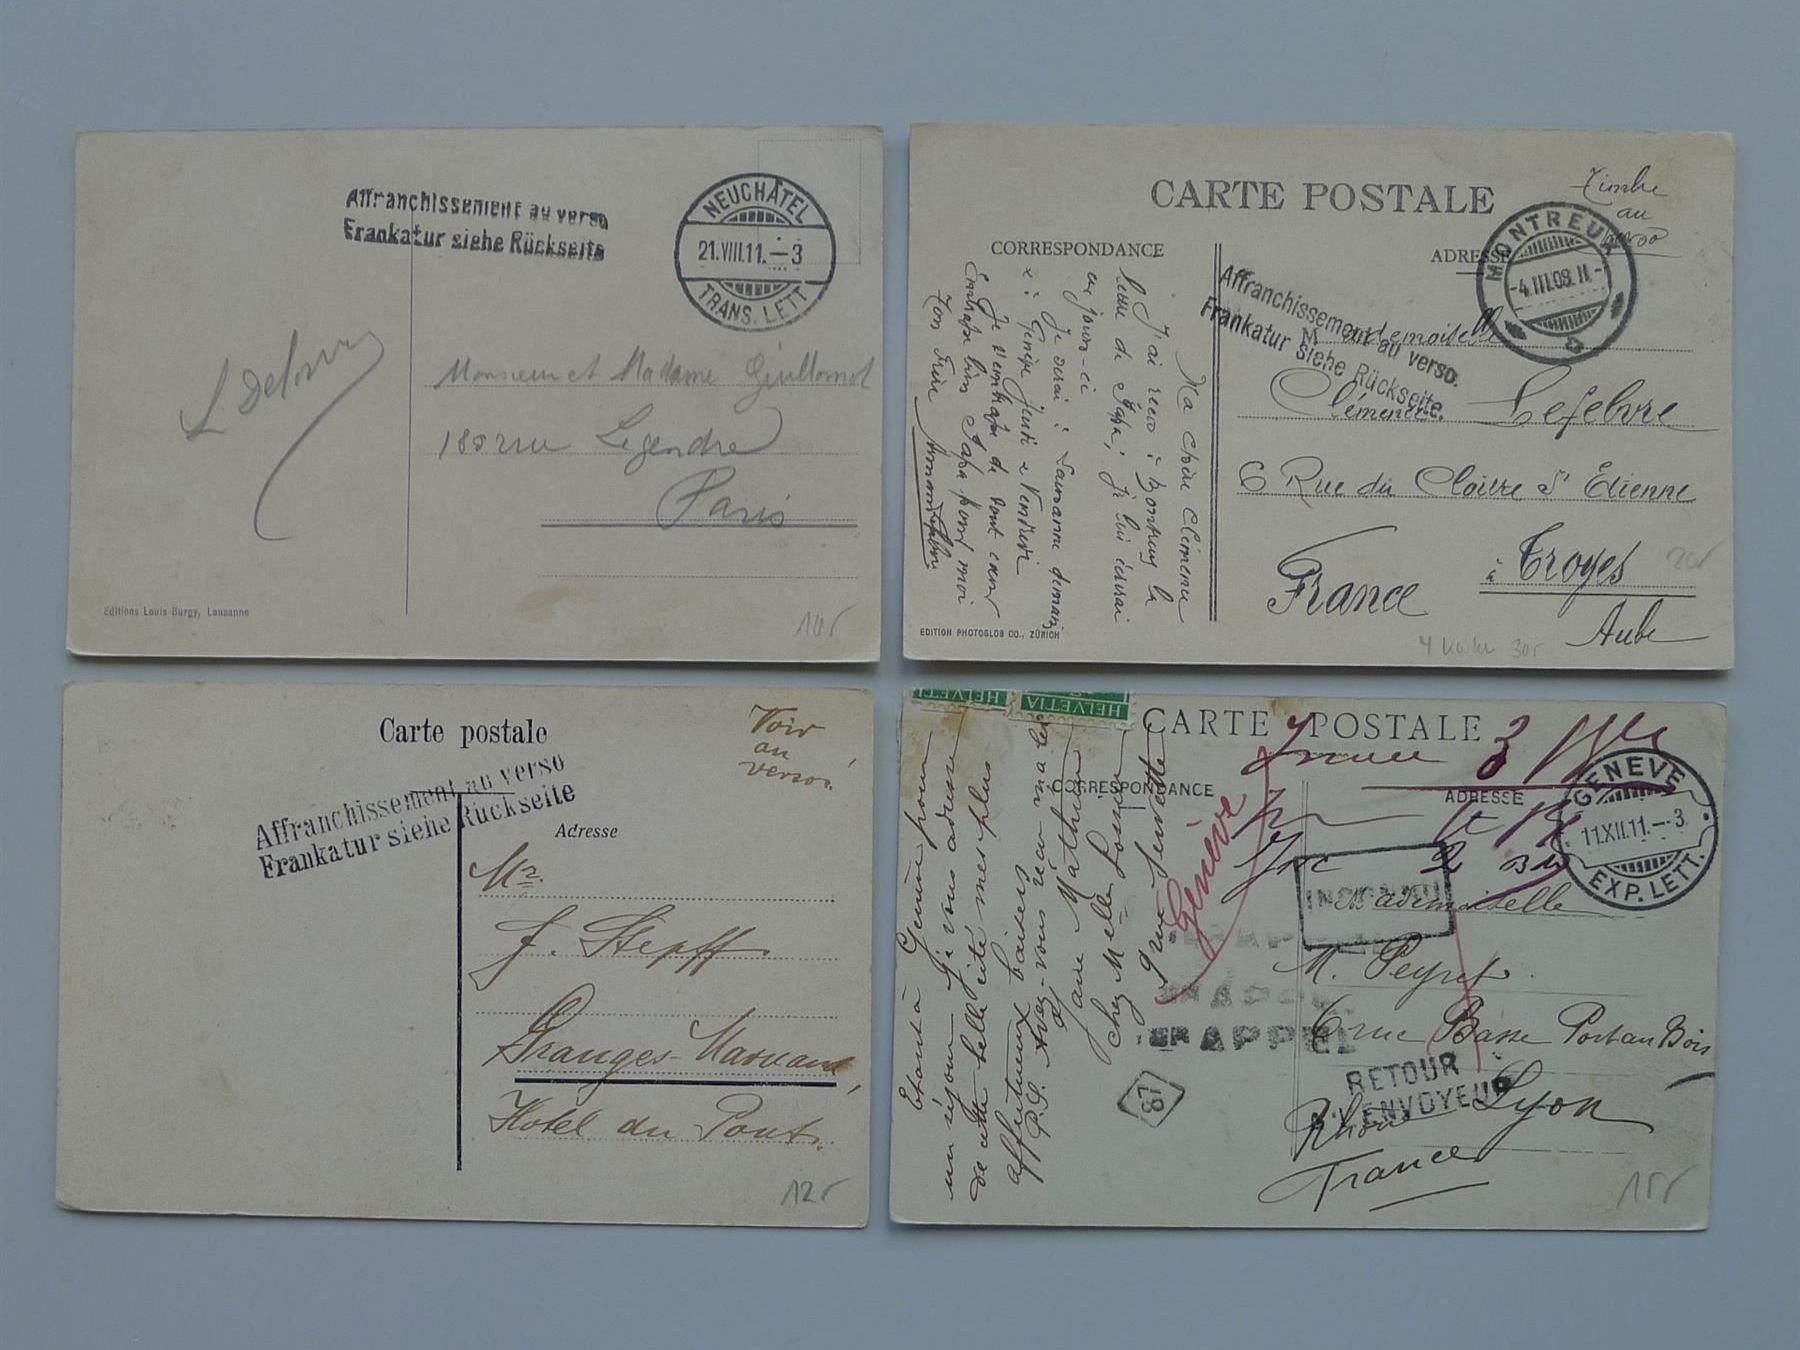 Affranchissement au verso
Frankatur siehe Rückseite
NEUCHÂTEL
21.VIII.11.–3
TRANS. LETT
Monsieur et Madame Guillomot
rue Legendre
Paris
Editions Louis Burgy, Lausanne
10.-
CARTE POSTALE
Timbre
au
verso
CORRESPONDANCE
ADRESSE
MONTREUX
-4.III.08.11.-
Affranchissement au verso.
Frankatur siehe Rückseite.
Ma chère Clémence
J'ai reçu à Montreux la
lettre de Papa; je lui écrirai
un jour-ci
Je serai à Lausanne demain
à Genève jeudi & Vendredi
Je t'embrasse de tout cœur
Embrasse bien Papa pour moi
Ton frère
Mademoiselle
Clémence Lefebvre
6 Rue du Cloitre St Etienne
à Troyes
France
Aube
EDITION PHOTOGLOB CO., ZÜRICH
20.-
30.-
Carte postale
Voir
au
verso!
Affranchissement au verso
Frankatur siehe Rückseite
Adresse
Mr.
Granges-Marnand,
Hôtel du Pont.
12.-
HELVETIA
HELVETIA
CARTE POSTALE
CORRESPONDANCE
ADRESSE
GENÈVE
11.XII.11.–3.
EXP. LETT.
Genève
Etant à Genève pour
un séjour je vous adresse
de cette belle cité mes plus
affectueux baisers
P.S. Avez-vous reçu ma
chez Melle
INCONNU
Mademoiselle
M. Peyret
6 rue Basse Port au Bois
Lyon
Rhône
France
APPEL
ER APPEL
RETOUR
À L'ENVOYEUR
L87
15.-